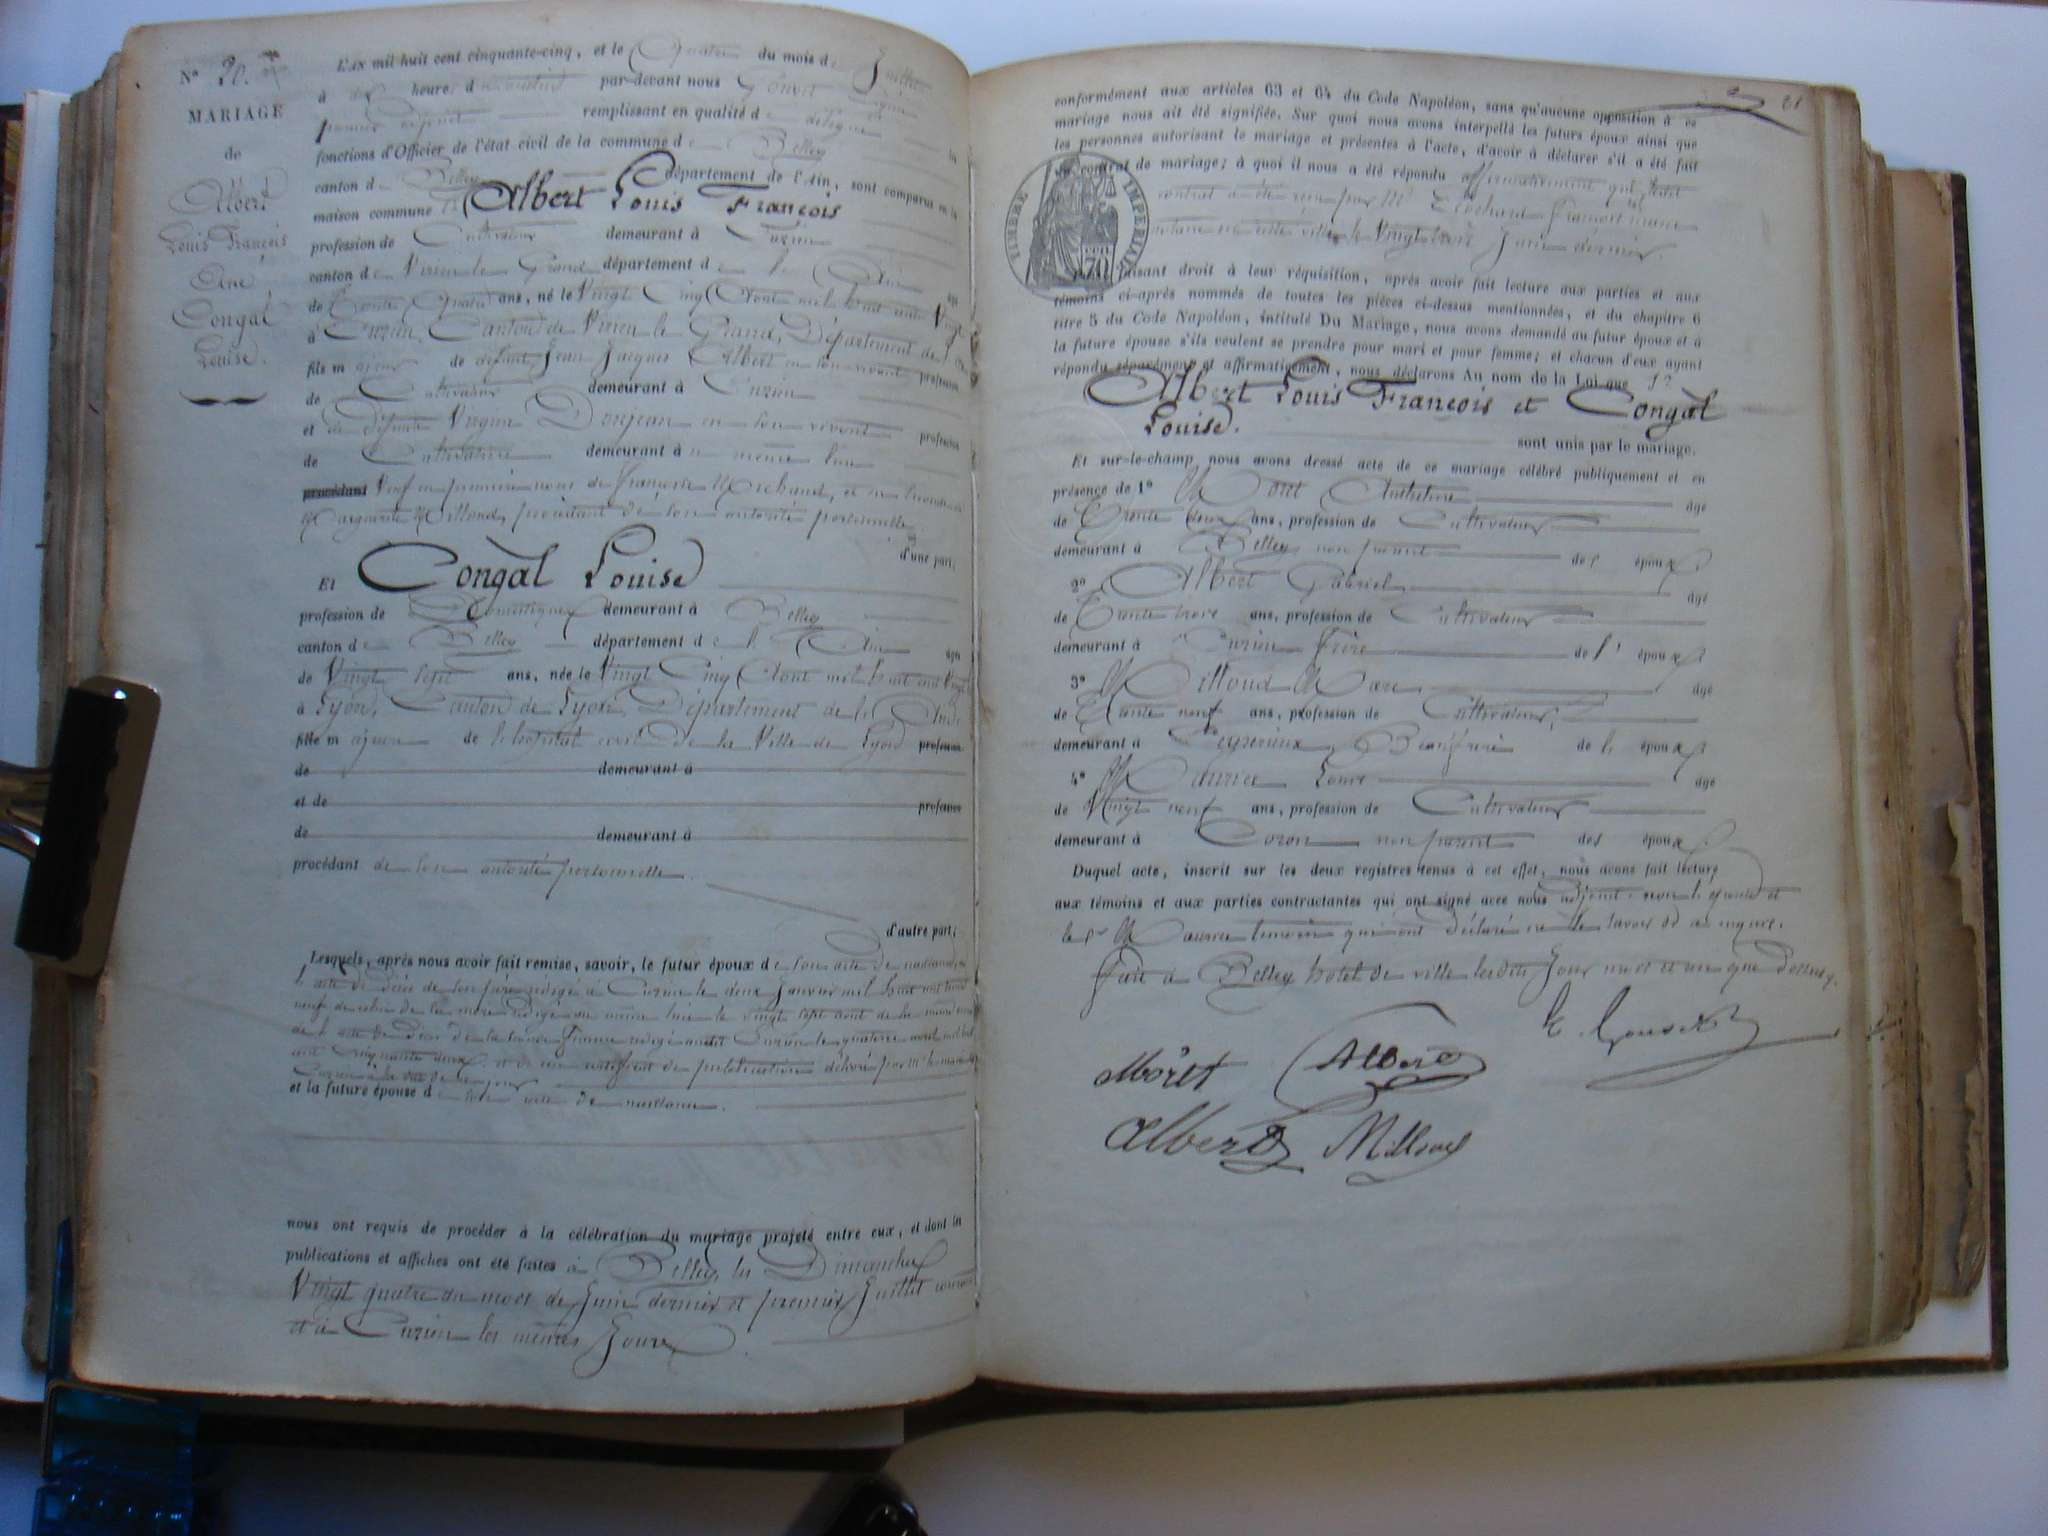 N° 20.
MARIAGE
de
Albert
Louis François
Congal
Louise.
L'AN mil huit cent cinquante-cinq, et le Quatre du mois de Juillet
à dix heures du matin par-devant nous
premier adjoint remplissant en qualité de délégué les
fonctions d'Officier de l'état civil de la commune de Belley
canton de Belley département de l'Ain, sont comparus en la
maison commune Albert Louis François
profession de Cultivateur demeurant à Cuzieu
canton de Virieu le Grand département de l'Ain âgé
de trente Quatre ans, né le Vingt Cinq Août mil huit cent Vingt
à Cuzieu, Canton de Virieu le Grand, Département de l'Ain
fils majeur de défunt Jean Jacques Albert en son vivant profession
de Cultivateur demeurant à Cuzieu
et de défunte Virginie Donjean en son vivant profession
de Cultivatrice demeurant à même lieu
procédant Veuf en premières noces de Françoise Marchand, et en secondes de
Marguerite Milloud, procédant de son autorité personnelle
d'une part;
Et Congal Louise
profession de Domestique demeurant à Belley
canton de Belley département de l'Ain âgée
de Vingt sept ans, née le Vingt Cinq Août mil huit cent Vingt
à Lyon, Canton de Lyon, Département de
fille majeure de l'hôpital civil de la Ville de Lyon profession
de demeurant à
et de profession
de demeurant à
procédant de son autorité personnelle.
d'autre part;
Lesquels, après nous avoir fait remise, savoir, le futur époux de son acte de naissance,
l'acte de décès de son père rédigé à Cuzieu le deux Janvier mil huit cent trente
neuf de celui de sa mère rédigé au même lieu le vingt sept août de la même année
de l'acte de décès de sa seconde Femme rédigé audit Cuzieu le quatorze avril mil huit
cent Cinquante deux, et de un certificat de publication délivré par Mr le maire de
Cuzieu à la date de ce jour
et la future épouse de son acte de naissance.
nous ont requis de procéder à la célébration du mariage projeté entre eux, et dont les
publications et affiches ont été faites à Belley les Dimanches
Vingt quatre du mois de Juin dernier et premier Juillet courant
et à Cuzieu les mêmes Jours
21
conformément aux articles 63 et 64 du Code Napoléon, sans qu'aucune opposition à ce
mariage nous ait été signifiée. Sur quoi nous avons interpellé les futurs époux ainsi que
les personnes autorisant le mariage et présentes à l'acte, d'avoir à déclarer s'il a été fait
un contrat de mariage; à quoi il nous a été répondu affirmativement que ledit
contrat a été reçu par Me François
notaire en cette ville, le Vingt trois Juin dernier.
TIMBRE IMPERIAL
70 CEN
faisant droit à leur réquisition, après avoir fait lecture aux parties et aux
témoins ci-après nommés de toutes les pièces ci-dessus mentionnées, et du chapitre 6
titre 5 du Code Napoléon, intitulé Du Mariage, nous avons demandé au futur époux et à
la future épouse s'ils veulent se prendre pour mari et pour femme; et chacun d'eux ayant
répondu séparément et affirmativement, nous déclarons Au nom de la Loi que
Albert Louis François et Congal
Louise. sont unis par le mariage.
Et sur-le-champ nous avons dressé acte de ce mariage célébré publiquement et en
présence de 1° Moret Anthelme âgé
de Trente deux ans, profession de Cultivateur
demeurant à Belley non parent des époux
2° Albert Gabriel âgé
de Trente trois ans, profession de Cultivateur
demeurant à Cuzieu Frère de l'époux
3° Milloud Marc âgé
de Trente neuf ans, profession de Cultivateur
demeurant à Peyrieux, Beaufrère de l'époux
4° Maurice Louis âgé
de Vingt neuf ans, profession de Cultivateur
demeurant à Coron non parent des époux
Duquel acte, inscrit sur les deux registres tenus à cet effet, nous avons fait lecture
aux témoins et aux parties contractantes qui ont signé avec nous adjoint, non l'épouse et
le sr Maurice témoin qui ont déclaré ne le savoir de ce enquis.
Fait à Belley hôtel de ville lesdits Jour mois et an que dessus.
Môret Albert
Albert Milloud